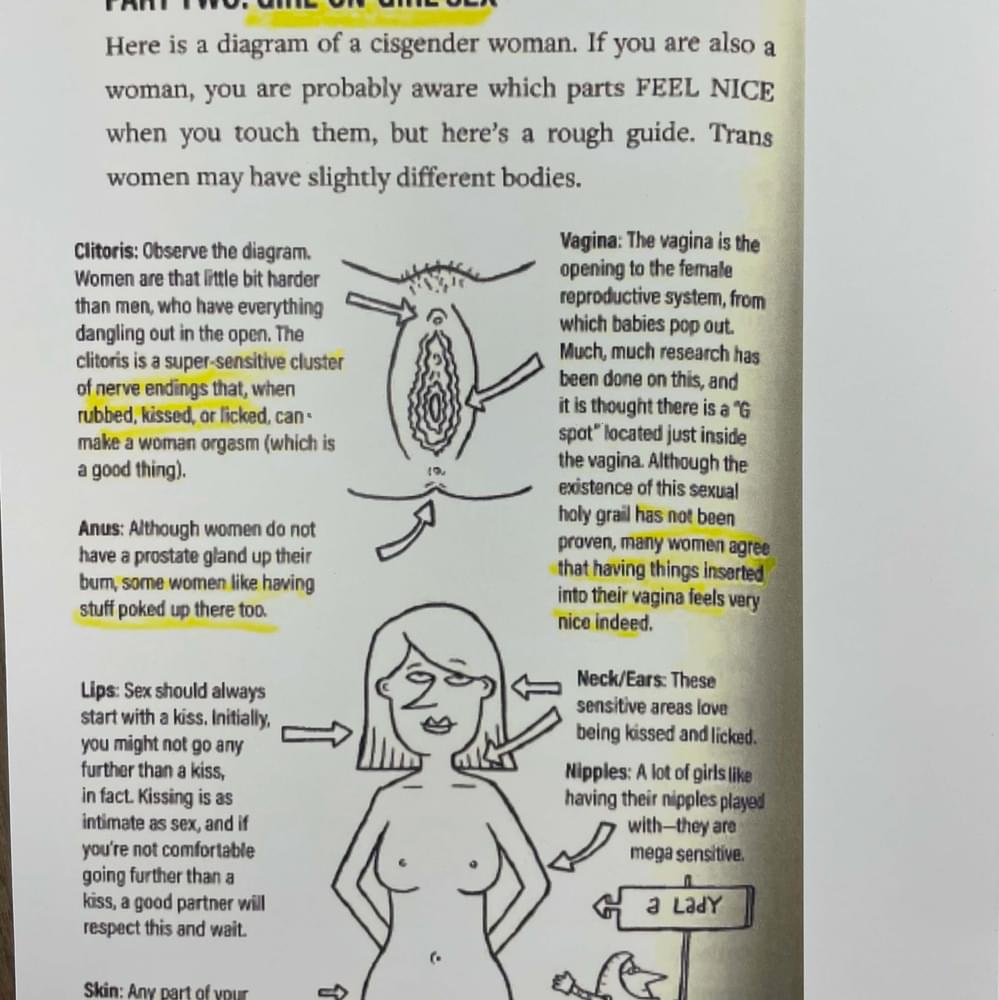 PART TWO: GIRL-ON-GIRL SEX
Here is a diagram of a cisgender woman. If you are also a
woman, you are probably aware which parts FEEL NICE
when you touch them, but here's a rough guide. Trans
women may have slightly different bodies.
Clitoris: Observe the diagram.
Women are that little bit harder
than men, who have everything
dangling out in the open. The
clitoris is a super-sensitive cluster
of nerve endings that, when
rubbed, kissed, or licked, can
make a woman orgasm (which is
a good thing).
Anus: Although women do not
have a prostate gland up their
bum, some women like having
stuff poked up there too.
Vagina: The vagina is the
opening to the female
reproductive system, from
which babies pop out.
Much, much research has
been done on this, and
it is thought there is a "G
spot" located just inside
the vagina. Although the
existence of this sexual
holy grail has not been
proven, many women agree
that having things inserted
into their vagina feels very
nice indeed.
Lips: Sex should always
start with a kiss. Initially,
you might not go any
further than a kiss,
in fact. Kissing is as
intimate as sex, and if
you're not comfortable
going further than a
kiss, a good partner will
respect this and wait.
Neck/Ears: These
sensitive areas love
being kissed and licked.
Nipples: A lot of girls like
having their nipples played
with—they are
mega sensitive.
a LadY
Skin: Any part of your